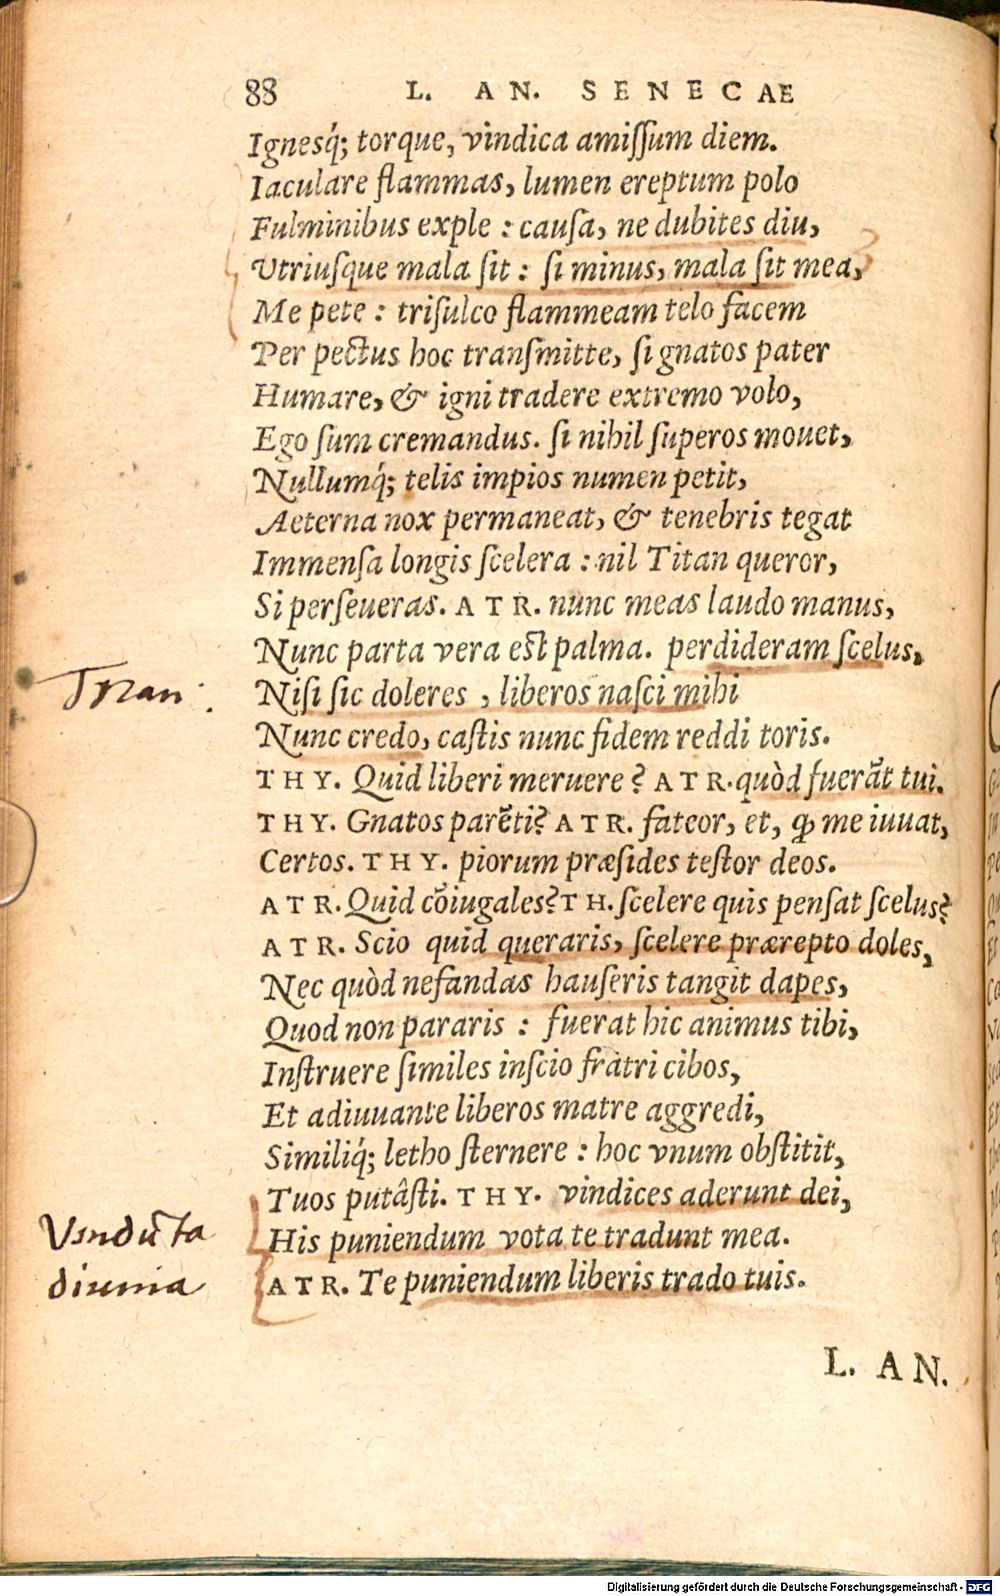 88 L. AN. SENECAE
Ignesq́; torque, vindica amiſſum diem.
Iaculare flammas, lumen ereptum polo
Fulminibus exple : cauſa, ne dubites diu,
Vtriuſque mala ſit : ſi minus, mala ſit mea,
Me pete : triſulco flammeam telo facem
Per pectus hoc tranſmitte, ſi gnatos pater
Humare, & igni tradere extremo volo,
Ego ſum cremandus. ſi nihil ſuperos mouet,
Nullumq́; telis impios numen petit,
Aeterna nox permaneat, & tenebris tegat
Immenſa longis ſcelera : nil Titan queror,
Si perſeueras. ATR. nunc meas laudo manus,
Nunc parta vera eſt palma. perdideram ſcelus,
Niſi ſic doleres , liberos naſci mihi
Nunc credo, caſtis nunc fidem reddi toris.
THY. Quid liberi meruere? ATR. quòd fuerāt tui.
THY. Gnatos parēti? ATR. fateor, et, ꝙ me iuuat,
Certos. THY. piorum præſides teſtor deos.
ATR. Quid cōiugales? TH. ſcelere quis penſat ſcelus?
ATR. Scio quid queraris, ſcelere prærepto doles,
Nec quòd nefandas hauſeris tangit dapes,
Quod non pararis : fuerat hic animus tibi,
Inſtruere ſimiles inſcio fratri cibos,
Et adiuuante liberos matre aggredi,
Similiq́; letho ſternere : hoc vnum obſtitit,
Tuos putâſti. THY. vindices aderunt dei,
His puniendum vota te tradunt mea.
Vindicta
diuina
ATR. Te puniendum liberis trado tuis.
L. AN.
Digitalisierung gefördert durch die Deutsche Forschungsgemeinschaft - DFG